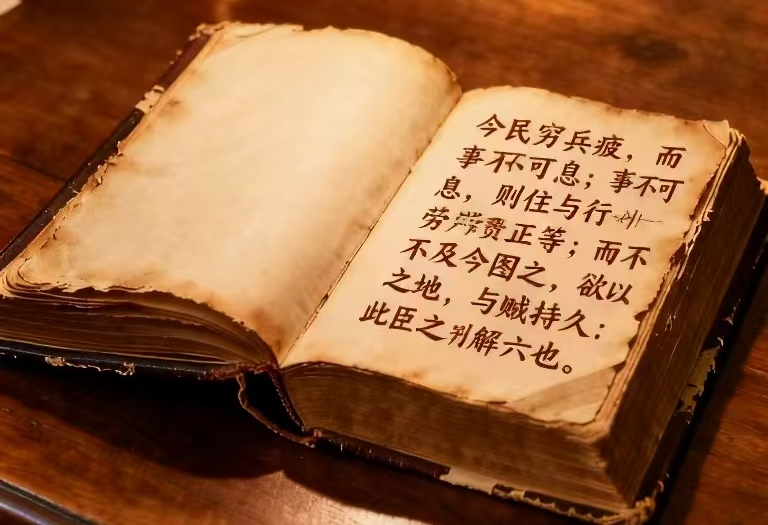 今民穷兵疲，而
事不可息；事不可
息，则住与行
劳费正等；而不
不及今图之，欲以
之地，与贼持久：
此臣之判解六也。